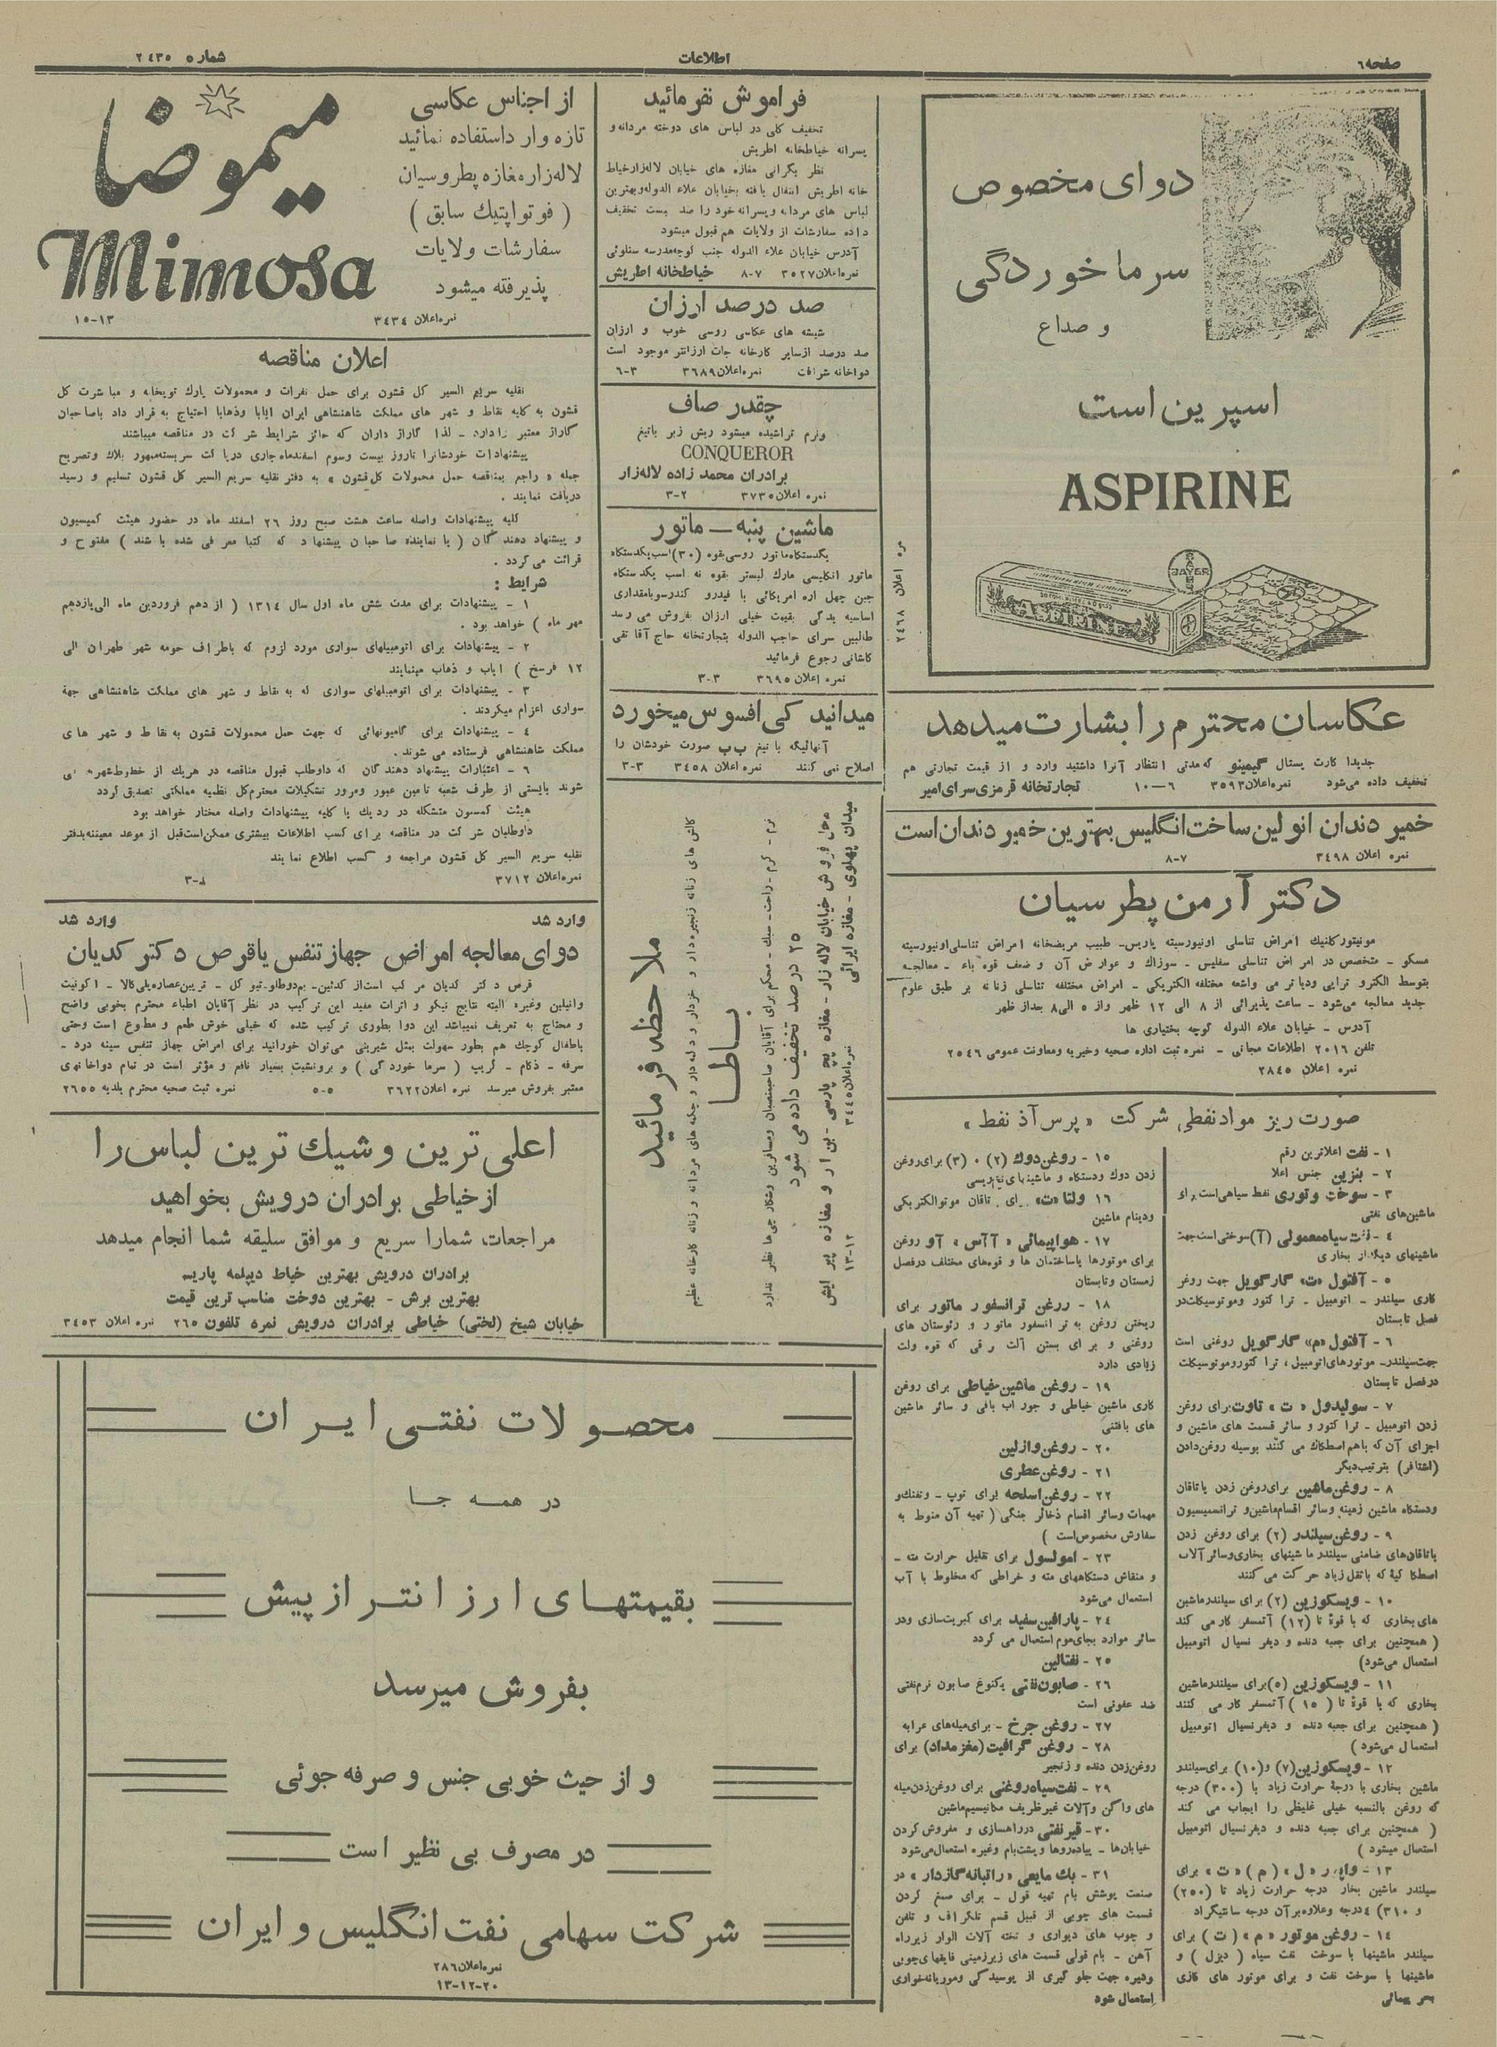 صفحه ٦
اطلاعات
شماره ٢٤٣٥
دوای مخصوص
سرما خوردگی
و صداع
اسپرین است
ASPIRINE
BAYER
ASPIRINE
نمره اعلان ٢٤٦٨
عکاسان محترم را بشارت میدهد
جدیدا کارت پستال گیمینو که مدتی انتظار آنرا داشتید وارد و از قیمت تجارتی هم
تخفیف داده می‌شود نمره اعلان ٣٥٩٣ ٦—١٠ تجارتخانه قرمزی سرای امیر
خمیر دندان انولین ساخت انگلیس بهترین خمیر دندان است
نمره اعلان ٣٤٩٨ ٧-٨
دکتر آرمن پطرسیان
مونیتور کلنیك امراض تناسلی اونیورسیته پاریس- طبیب مریضخانه امراض تناسلی اونیورسیته
مسکو - متخصص در امراض تناسلی سفلیس - سوزاك و عوارض آن و ضعف قوه باء - معالجه
بتوسط الکترو تراپی ودیاترمی واشعه مختلفه الکتریکی - امراض مختلفه تناسلی زنانه بر طبق علوم
جدید معالجه می‌شود - ساعت پذیرائی از ٨ الی ١٢ ظهر واز ٥ الی ٨ بعداز ظهر
آدرس - خیابان علاء الدوله کوچه بختیاری ها
تلفن ٢٠١٦ اطلاعات مجانی - نمره ثبت اداره صحیه وخیریه ومعاونت عمومی ٢٥٤٦
نمره اعلان ٢٨٤٥
صورت ریز مواد نفطی شرکت « پرس آذ نفط »
١ - نفت اعلاترین رقم
٢ - بنزین جنس اعلا
٣ - سوخت وتوری نفط سیاهی است برای
ماشین‌های نفتی
٤ - نفت سیاه معمولی (آ) سوختی است جهت
ماشینهای دیگدار بخاری
٥ - آفتول «ت» گارگویل جهت روغن
کاری سیلندر - اتومبیل - ترا کتور وموتوسیکلت در
فصل تابستان
٦ - آفتول «م» گارگویل روغنی است
جهت سیلندر- موتورهای اتومبیل، ترا کتور وموتوسیکلت
در فصل تابستان
٧ - سولیدول « ت » تاوت برای روغن
زدن اتومبیل - ترا کتور و سائر قسمت های ماشین و
اجزای آن که باهم اصطکاك می کنند بوسیله روغن‌دادن
(اشتافر) بترتیب دیگر
٨ - روغن ماشین برای روغن زدن یاتاقان
ودستگاه ماشین زمینه وسائر اقسام ماشین و ترانسمیسیون
٩ - روغن سیلندر (٢) برای روغن زدن
یاتاقان‌های ضامنی سیلندر ماشینهای بخاری وسائر آلات
اصطکاکیهٔ که باثقل زیاد حرکت می کنند
١٠ - ویسکوزین (٢) برای سیلندر ماشین
های بخاری که با قوهٔ تا (١٢) آتمسفر کار می کند
( همچنین برای جعبه دنده و دیفرنسیال اتومبیل
استعمال می‌شود)
١١ - ویسکوزین (٥) برای سیلندر ماشین
بخاری که با قوهٔ تا ( ١٥ ) آتمسفر کار می کنند
( همچنین برای جعبه دنده و دیفرنسیال اتومبیل
استعمال می‌شود )
١٢ - ویسکوزین (٧) و(١٠) برای سیلندر
ماشین بخاری با درجهٔ حرارت زیاد با (٣٠٠) درجه
که روغن بالنسبه خیلی غلیظی را ایجاب می کند
( همچنین برای جعبه دنده و دیفرنسیال اتومبیل
استعمال میشود )
١٣ - واپر « ل » ( م ) « ت » برای
سیلندر ماشین بخار درجه حرارت زیاد تا (٢٥٠)
و ٣١٠) درجه وعلاوه برآن درجه سانتیگراد
١٤ - روغن موتور « م » ( ت ) برای
سیلندر ماشینها با سوخت نفت سیاه ( دیزل ) و
ماشینها با سوخت نفت و برای موتور های گازی
بحر پیمائی
١٥ - روغن دوك (٢) ٠ (٣) برای روغن
زدن دوك ودستگاه و ماشینهای نخ ریسی
١٦ - ولتا «ت» برای یاتاقان موتوالکتریکی
ودینام ماشین
١٧ - هواپیمائی « آآس » آو روغن
برای موتورها باساختمان ها و قوه‌های مختلف در فصل
زمستان وتابستان
١٨ - روغن ترانسفور ماتور برای
ریختن روغن به ترانسفور ماتور و رئوستان های
روغنی و برای بستن آلت برقی که قوه ولت
زیادی دارد
١٩ - روغن ماشین خیاطی برای روغن
کاری ماشین خیاطی و جوراب بافی و سائر ماشین
های بافتنی
٢٠ - روغن وازلین
٢١ - روغن عطری
٢٢ - روغن اسلحه برای توپ - وتفنگ و
مهمات وسائر اقسام ذخائر جنگی ( تهیه آن منوط به
سفارش مخصوص است )
٢٣ - امولسول برای تقلیل حرارت مته -
و منقاش دستگاههای مته و خراطی که مخلوط با آب
استعمال می‌شود
٢٤ - پارافین سفید برای کبریت‌سازی ودر
سائر موارد بجای موم استعمال می گردد
٢٥ - نفتالین
٢٦ - صابون نفتی یکنوع صابون نرم نفتی
ضد عفونی است
٢٧ - روغن چرخ - برای میله‌های عرابه
٢٨ - روغن گرافیت (مغز مداد) برای
روغن‌زدن دنده و زنجیر
٢٩ - نفت سیاه روغنی برای روغن‌زدن میله
های واگن وآلات غیر ظریف مکانیسم ماشین
٣٠ - قیر نفتی در راهسازی و مفروش کردن
خیابان‌ها - پیاده‌روها و پشت‌بام وغیره استعمال می‌شود
٣١ - بك مایعی « راتبانه گازدار » در
صنعت پوشش بام تهیه قول - برای صمغ کردن
قسمت های چوبی از قبیل قسم تلگراف و تلفن
و چوب های دیواری و تخته آلات الوار زیرراه
آهن - بام قولی قسمت های زیرزمینی قایقهای‌چوبی
وغیره جهت جلوگیری از پوسیدگی وموریانه‌خواری
استعمال شود
فراموش نفرمائید
تخفیف کلی در لباس های دوخته مردانه و
پسرانه خیاطخانه اطریش
نظر بگرانی مغازه های خیابان لاله‌زار خیاط
خانه اطریش انتقال یافته بخیابان علاء الدوله وبهترین
لباس های مردانه وپسرانه خود را صد بیست تخفیف
داده سفارشات از ولایات هم قبول میشود
آدرس خیابان علاء الدوله جنب کوچه مدرسه سنلوئی
نمره اعلان ٣٥٢٧ ٧-٨ خیاطخانه اطریش
صد درصد ارزان
شیشه های عکاسی روسی خوب و ارزان
صد درصد از سایر کارخانه جات ارزانتر موجود است
دواخانه شرافت نمره اعلان ٣٦٨٩ ٣-٦
چقدر صاف
ونرم تراشیده میشود ریش زبر باتیغ
CONQUEROR
برادران محمد زاده لاله‌زار
نمره اعلان ٣٧٣٥ ٢-٣
ماشین پنبه - ماتور
یکدستگاه ماتور روسی بقوه (٣٠) اسب یکدستگاه
ماتور انگلیسی مارك لیستر بقوه نه اسب یکدستگاه
جین چهل اره امریکائی با فیدرو کندرسو بامقداری
اساسیه یدگی بقیمت خیلی ارزان بفروش می رسد
طالبین سرای حاجب الدوله بتجارتخانه حاج آقا تقی
کاشانی رجوع فرمائید
نمره اعلان ٣٦٩٥ ٣-٣
میدانید کی افسوس میخورد
آنهائیکه با تیغ ب‌ب صورت خودشان را
اصلاح نمی کنند نمره اعلان ٣٤٥٨ ٣-٣
ملاحظه فرمائید
کالش های زنانه زنجیره‌دار و خزدار و دله‌دار و چکمه های مردانه و زنانه کارخانه عظیم
باطا
نرم - گرم - راحت - سبك - محکم برای آقایان صاحبمنصبان ومسافرین وشکارچی‌ها نظیر ندارد
٢٥ درصد تخفیف داده می شود
محل فروش خیابان لاله زار - مغازه پیچ پارسی - بن ار و مغازه پیرایش
میدان پهلوی - مغازه ایرانی نمره اعلان ٣٤٤٥ ١٢-١٣
از اجناس عکاسی
تازه وارد استفاده نمائید
لاله‌زار مغازه پطروسیان
( فوتو اپتیك سابق )
سفارشات ولایات
پذیرفته میشود
میموضا
Mimosa
نمره اعلان ٣٤٣٤ ١٣-١٥
اعلان مناقصه
نقلیه سریع السیر کل قشون برای حمل نفرات و محمولات پارك توپخانه و مباشرت کل
قشون به کلیه نقاط و شهر های مملکت شاهنشاهی ایران ایابا وذهابا احتیاج به قرار داد باصاحبان
گاراژ معتبر را دارد - لذا گاراژ داران که حائز شرایط شرکت در مناقصه میباشند
پیشنهادات خودشانرا تاروز بیست وسوم اسفندماه جاری در پاکت سربسته ممهور بلاك وتصریح
جمله « راجع بمناقصه حمل محمولات کل قشون » به دفتر نقلیه سریع السیر کل قشون تسلیم و رسید
دریافت نمایند .
کلیه پیشنهادات واصله ساعت هشت صبح روز ٢٦ اسفند ماه در حضور هیئت کمیسیون
و پیشنهاد دهندگان ( یا نماینده صاحبان پیشنهاد که کتبا معرفی شده باشند ) مفتوح و
قرائت می گردد .
شرایط :
١ - پیشنهادات برای مدت شش ماه اول سال ١٣١٤ ( از دهم فروردین ماه الی یازدهم
مهر ماه ) خواهد بود .
٢ - پیشنهادات برای اتومبیلهای سواری مورد لزوم که باطراف حومه شهر طهران الی
١٢ فرسخ ) ایاب و ذهاب مینمایند
٣ - پیشنهادات برای اتومبیلهای سواری که به نقاط و شهر های مملکت شاهنشاهی جهة
سواری اعزام میگردند .
٤ - پیشنهادات برای کامیونهائی که جهت حمل محمولات قشون به نقاط و شهر های
مملکت شاهنشاهی فرستاده می شوند .
٦ - اعتبارات پیشنهاد دهندگان که داوطلب قبول مناقصه در هریك از خطوط شهرهای
شوند بایستی از طرف شعبه تامین عبور ومرور تشکیلات محترم کل نظمیه مملکتی تصدیق گردد
هیئت کمسیون متشکله در رد یك یا کلیه پیشنهادات واصله مختار خواهد بود
داوطلبان شرکت در مناقصه برای کسب اطلاعات بیشتری ممکن است قبل از موعد معینه به‌دفتر
نقلیه سریع السیر کل قشون مراجعه و کسب اطلاع نمایند
نمره اعلان ٣٧١٢
وارد شد وارد شد
دوای معالجه امراض جهاز تنفس یا قرص دکتر کدیان
قرص دکتر کدیان مرکب است از کدئین- بم دوطلو-تیو کل - تربین عصاره بلی کالا - اکونیت
وانیلین وغیره البته نتایج نیکو و اثرات مفید این ترکیب در نظر آقایان اطباء محترم بخوبی واضح
و محتاج به تعریف نمیباشد این دوا بطوری ترکیب شده که خیلی خوش طعم و مطبوع است وحتی
باطفال کوچك هم بطور سهولت بمثل شیرینی می‌توان خورانید برای امراض جهاز تنفس سینه درد -
سرفه - ذکام - گریپ ( سرما خوردگی ) و برونشیت بسیار نافع و مؤثر است در تمام دواخانهای
معتبر بفروش میرسد نمره اعلان ٣٦٢٢ ٥-٥ نمره ثبت صحیه محترم بلدیه ٢٦٥٥
اعلی ترین وشیك ترین لباس را
از خیاطی برادران درویش بخواهید
مراجعات شمارا سریع و موافق سلیقه شما انجام میدهد
برادران درویش بهترین خیاط دیپلمه پاریس
بهترین برش - بهترین دوخت مناسب ترین قیمت
خیابان شیخ (لختی) خیاطی برادران درویش نمره تلفون ٢٦٥ نمره اعلان ٣٤٥٣
محصولات نفتی ایران
در همه جا
بقیمتهای ارزانتر از پیش
بفروش میرسد
و از حیث خوبی جنس و صرفه جوئی
در مصرف بی نظیر است
شرکت سهامی نفت انگلیس و ایران
نمره اعلان ٢٨٦
٢٠-١٢-١٣